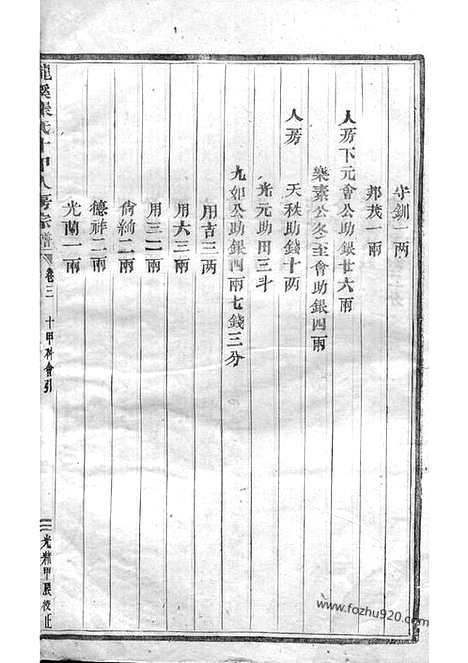 守釧一两
邦茂一兩
人房下元會公助銀廿六兩
樂素公冬至會助銀四兩
人房 天秩助錢十两
光元助田三斗
九如公助銀四兩七錢三分
用吉三两
用六三兩
用三二兩
尙綺二兩
德祥二兩
光蘭一兩
龍溪張氏十甲人房宗譜 卷三 十甲科會引 光精甲殿校正
www.fozhu920.com